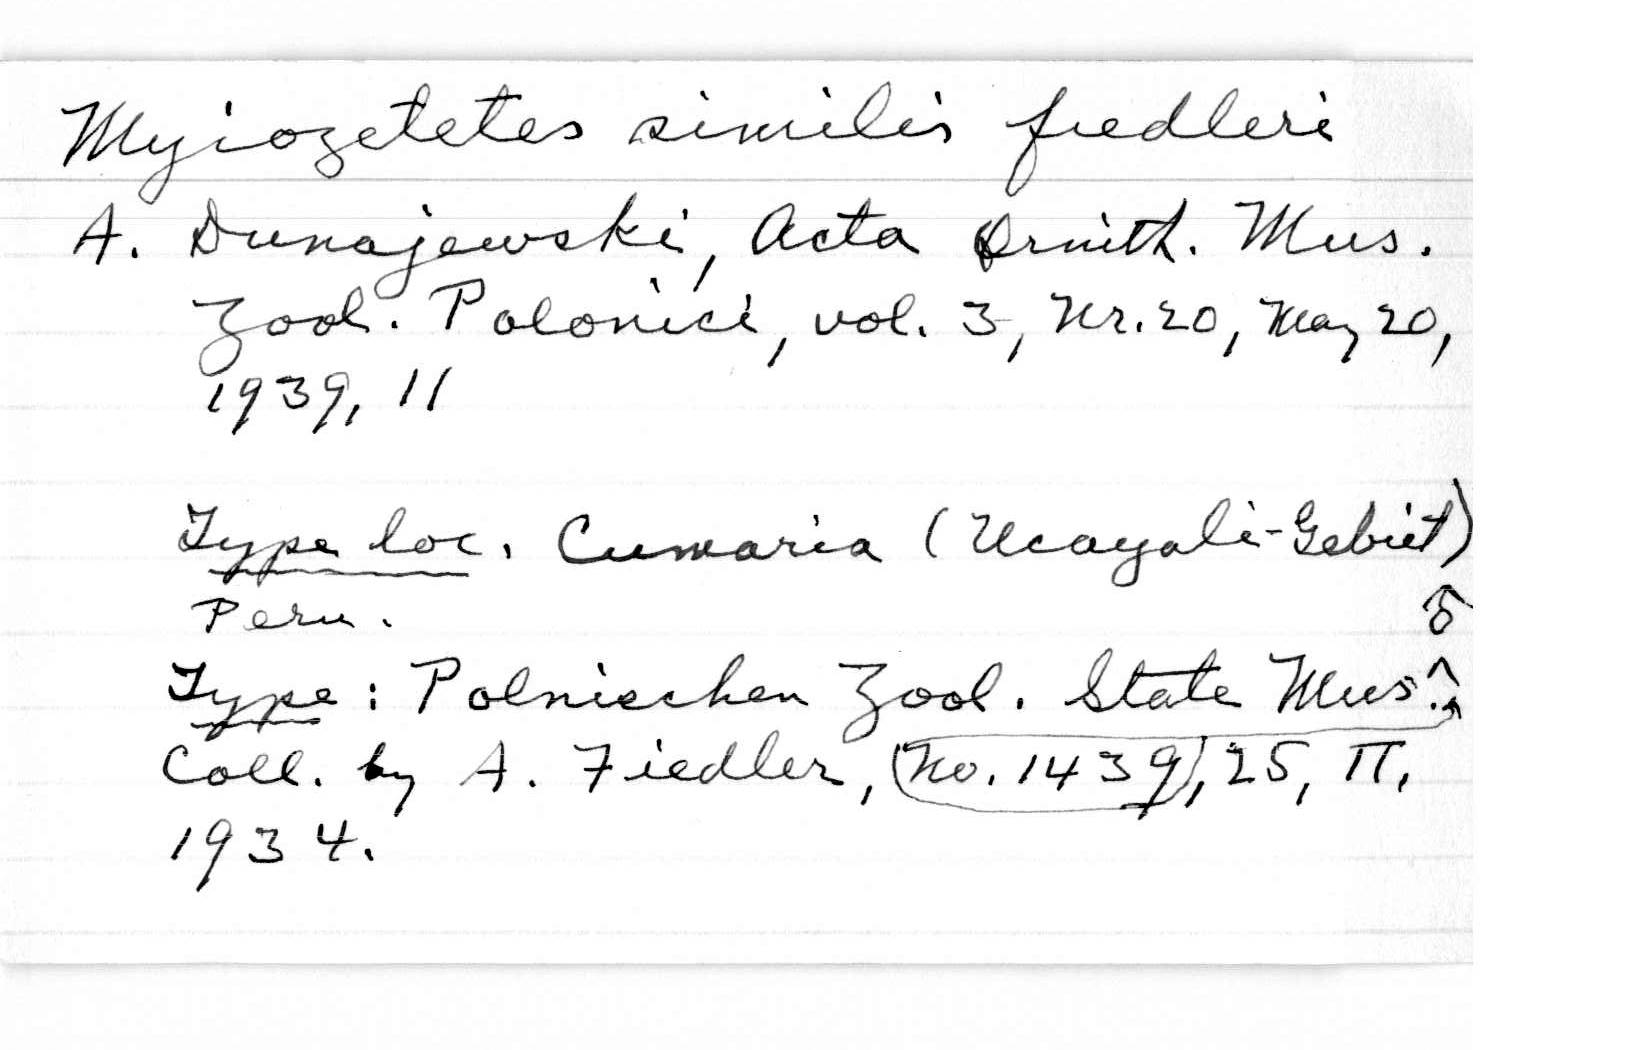 Myiozetetes similis fiedleri
A. Dunajewski, Acta Ornith. Mus.
Zool. Polonici, vol. 3, Nr. 20, May 20,
1939, 11
Type loc. Cumaria (Ucayali-Gebiet)
Peru.
Type: Polnischen Zool. State Mus.
Coll. by A. Fiedler, (No. 1439), 25, II,
1934.